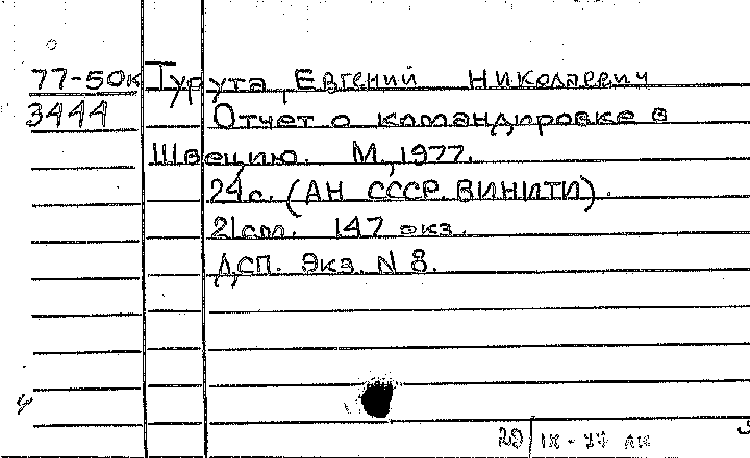 77-50к Турута, Евгений Николаевич
3444 Отчет о командировке в
Швецию. М., 1977.
24с. (АН СССР. ВИНИТИ).
21см. 147 экз.
ДСП. Экз. N 8.
20 IX-77